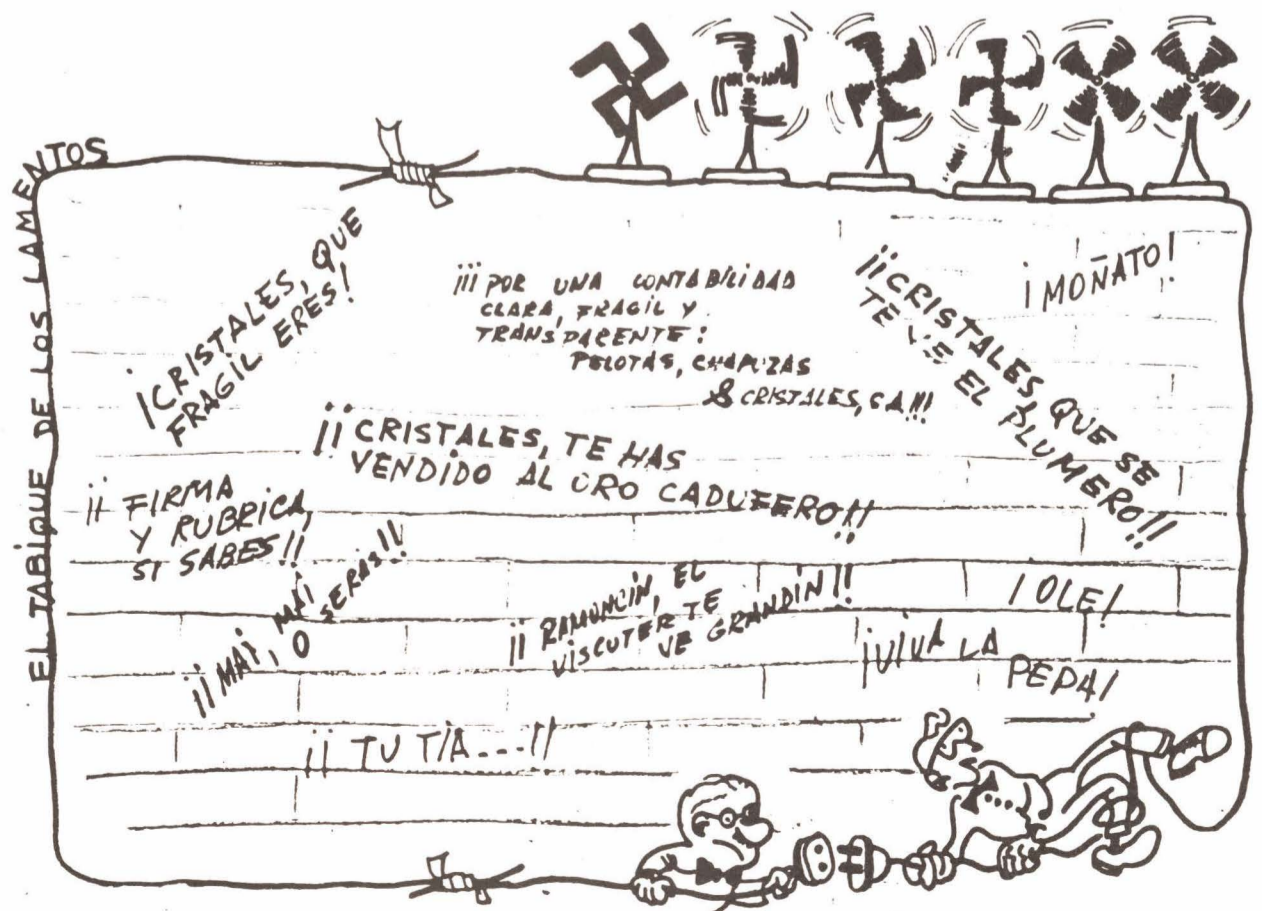 EL TABIQUE DE LOS LAMENTOS
¡CRISTALES, QUE
FRAGIL ERES!
¡¡¡ POR UNA CONTABILIDAD
CLARA, FRAGIL Y
TRANSPARENTE:
PELOTAS, CHAPUZAS
& CRISTALES, S.A.!!!
¡¡CRISTALES, QUE SE
TE VE EL PLUMERO!!
¡MOÑATO!
¡¡ CRISTALES, TE HAS
VENDIDO AL ORO CADUFERO!!
¡¡ FIRMA
Y RUBRICA,
SI SABES!!
¡¡MAI, MAI
O SERAS!!
¡¡ RAMONCIN, EL
VISCUTER TE
VE GRANDIN!!
¡OLE!
¡VIVA LA
PEPA!
¡¡ TU TIA...!!